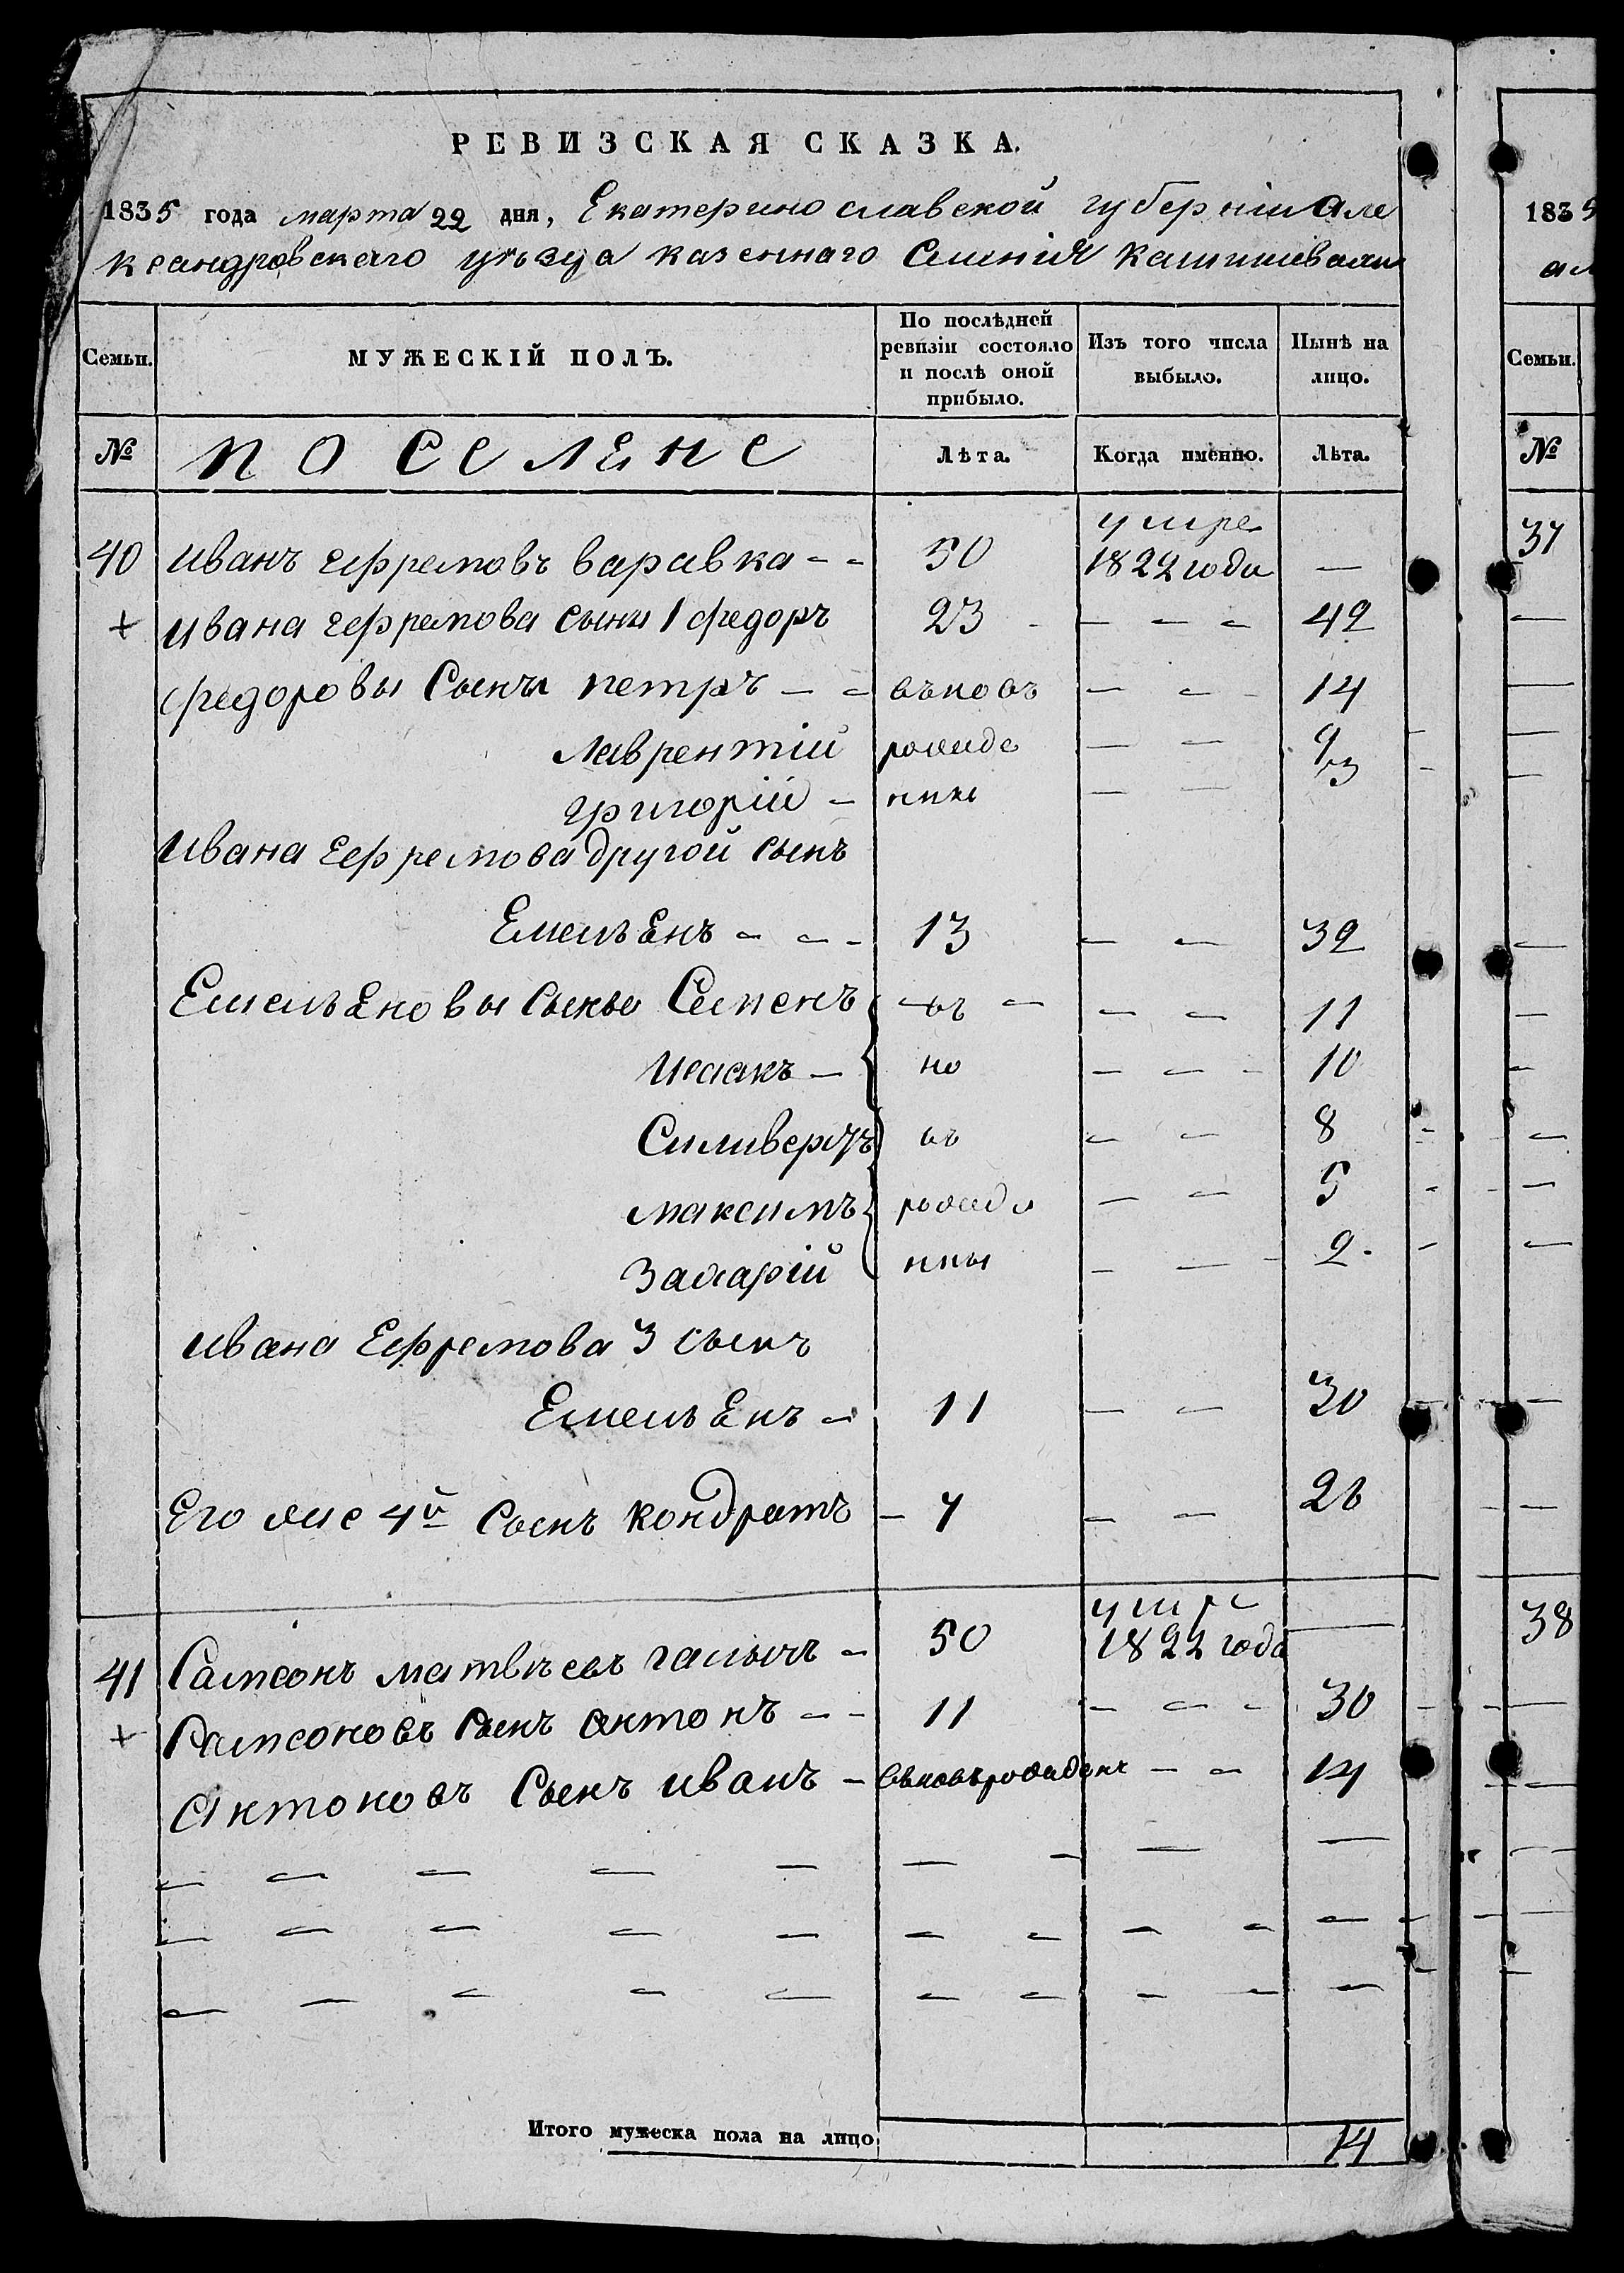 РЕВИЗСКАЯ СКАЗКА.
1835 года марта 22 дня, Екатеринославской губерніи Але
ксандровскаго уѣзда казеннаго Селенія
Семьи.
МУЖЕСКІЙ ПОЛЪ.
По послѣдней ревизіи состояло и послѣ оной прибыло.
Изъ того числа выбыло.
Нынѣ на лицо.
№
ПОСЕЛЕНЕ
Лѣта.
Когда именно.
Лѣта.
40 Иванъ Ефремовъ варавка - - 50 умре 1822 года —
+ Ивана Ефремова сыны 1 федоръ 23 - — — — 42
федоровы Сыны петръ — - вьновъ — - - 14
лаврентій рожде — — 9
григорій - нны — — 3
Ивана Ефремова другой сынъ
ЕмельЕнъ - - - 13 — — 32
ЕмельЕновы сыны Семенъ - въ - — — 11
Исаакъ — но — — - 10
Силиверстъ въ — — 8
максимъ рожде — — 5
Захарій нны — — - 2.
Ивана Ефремова 3 сынъ
ЕмельЕнъ - 11 — — 30
Его же 4й Сынъ кондратъ — 7 — — 26
41 Самсонъ матвѣевъ - 50 умре 1822 года —
+ Самсоновъ Сынъ антонъ - - 11 — — - 30
Антоновъ Сынъ иванъ - вьновърожденъ — - 14
Итого мужеска пола на лицо 14
1835
Семьи.
№
37
38